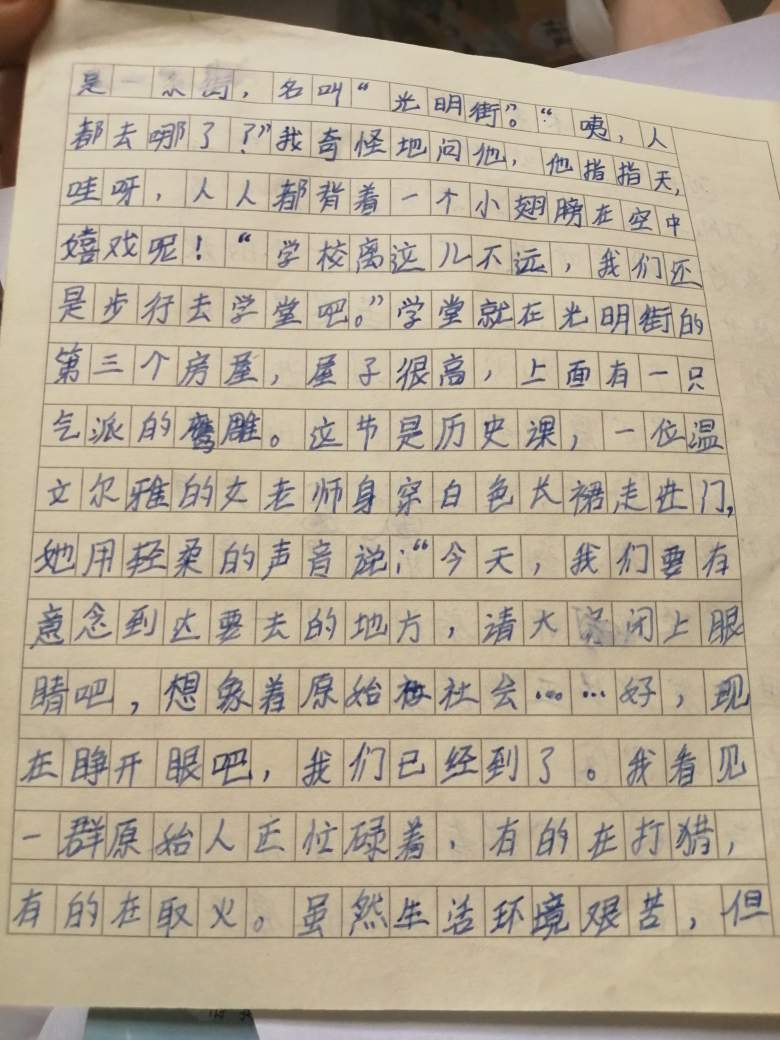 是一条街，名叫“光明街”。“咦，人
都去哪了？”我奇怪地问他，他指指天，
哇呀，人人都背着一个小翅膀在空中
嬉戏呢！“学校离这儿不远，我们还
是步行去学堂吧。”学堂就在光明街的
第三个房屋，屋子很高，上面有一只
气派的鹰雕。这节是历史课，一位温
文尔雅的女老师身穿白色长裙走进门，
她用轻柔的声音说：“今天，我们要有
意念到达要去的地方，请大家闭上眼
睛吧，想象着原始社会……好，现
在睁开眼吧，我们已经到了。我看见
一群原始人正忙碌着，有的在打猎，
有的在取火。虽然生活环境艰苦，但